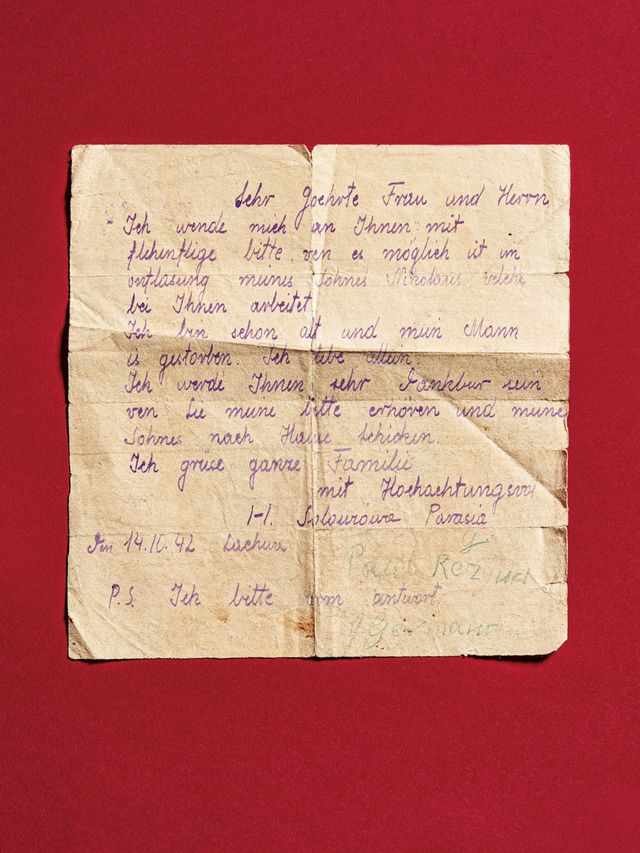 Sehr Geehrte Frau und Herrn
Ich wende mich an Ihnen mit
flehenflige bitte, ven es möglich ist um
entlasung meines Sohnes Nikolaus welche
bei Ihnen arbeitet.
Ich bin schon alt und mein Mann
is gestorben. Ich lebe allein.
Ich werde Ihnen sehr Dankbar sein
ven Sie meine bitte erhören und meine
Sohnes nach Hause schicken.
Ich grüse ganze Familie
mit Hochachtungsvol
Parasia
Den 14.10.42
P.S. Ich bitte um antwort